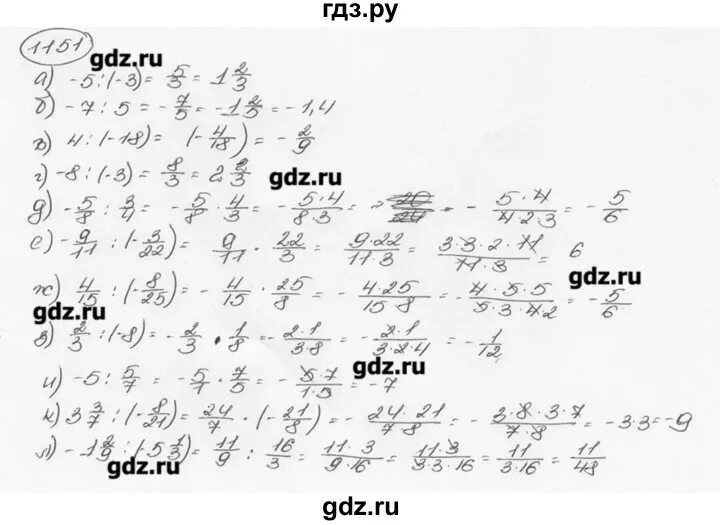 гдз.ру
1151
gdz.ru
а) -5 : (-3) = 5/3 = 1 2/3
б) -7 : 5 = -7/5 = -1 2/5 = -1,4
в) 4 : (-18) = (-4/18) = -2/9
г) -8 : (-3) = 8/3 = 2 2/3
gdz.ru
д) -5/8 : 3/4 = -5/8 · 4/3 = -5·4/8·3 = = -5·4/4·2·3 = -5/6
е) -9/11 : (-3/22) = 9/11 · 22/3 = 9·22/11·3 = 3·3·2·11/11·3 = 6
gdz.ru
ж) 4/15 : (-8/25) = -4/15 · 25/8 = -4·25/15·8 = -4·5·5/5·3·4·2 = -5/6
gdz.ru
з) 2/3 : (-8) = -2/3 · 1/8 = -2·1/3·8 = -2·1/3·2·4 = -1/12
gdz.ru
и) -5 : 5/7 = -5/1 · 7/5 = -5·7/1·5 = -7
к) 3 3/7 : (-8/21) = 24/7 · (-21/8) = -24·21/7·8 = -3·8·3·7/7·8 = -3·3 = -9
л) -1 2/9 : (-5 1/3) = 11/9 : 16/3 = 11·3/9·16 = 11·3/3·3·16 = 11/3·16 = 11/48
gdz.ru
gdz.ru